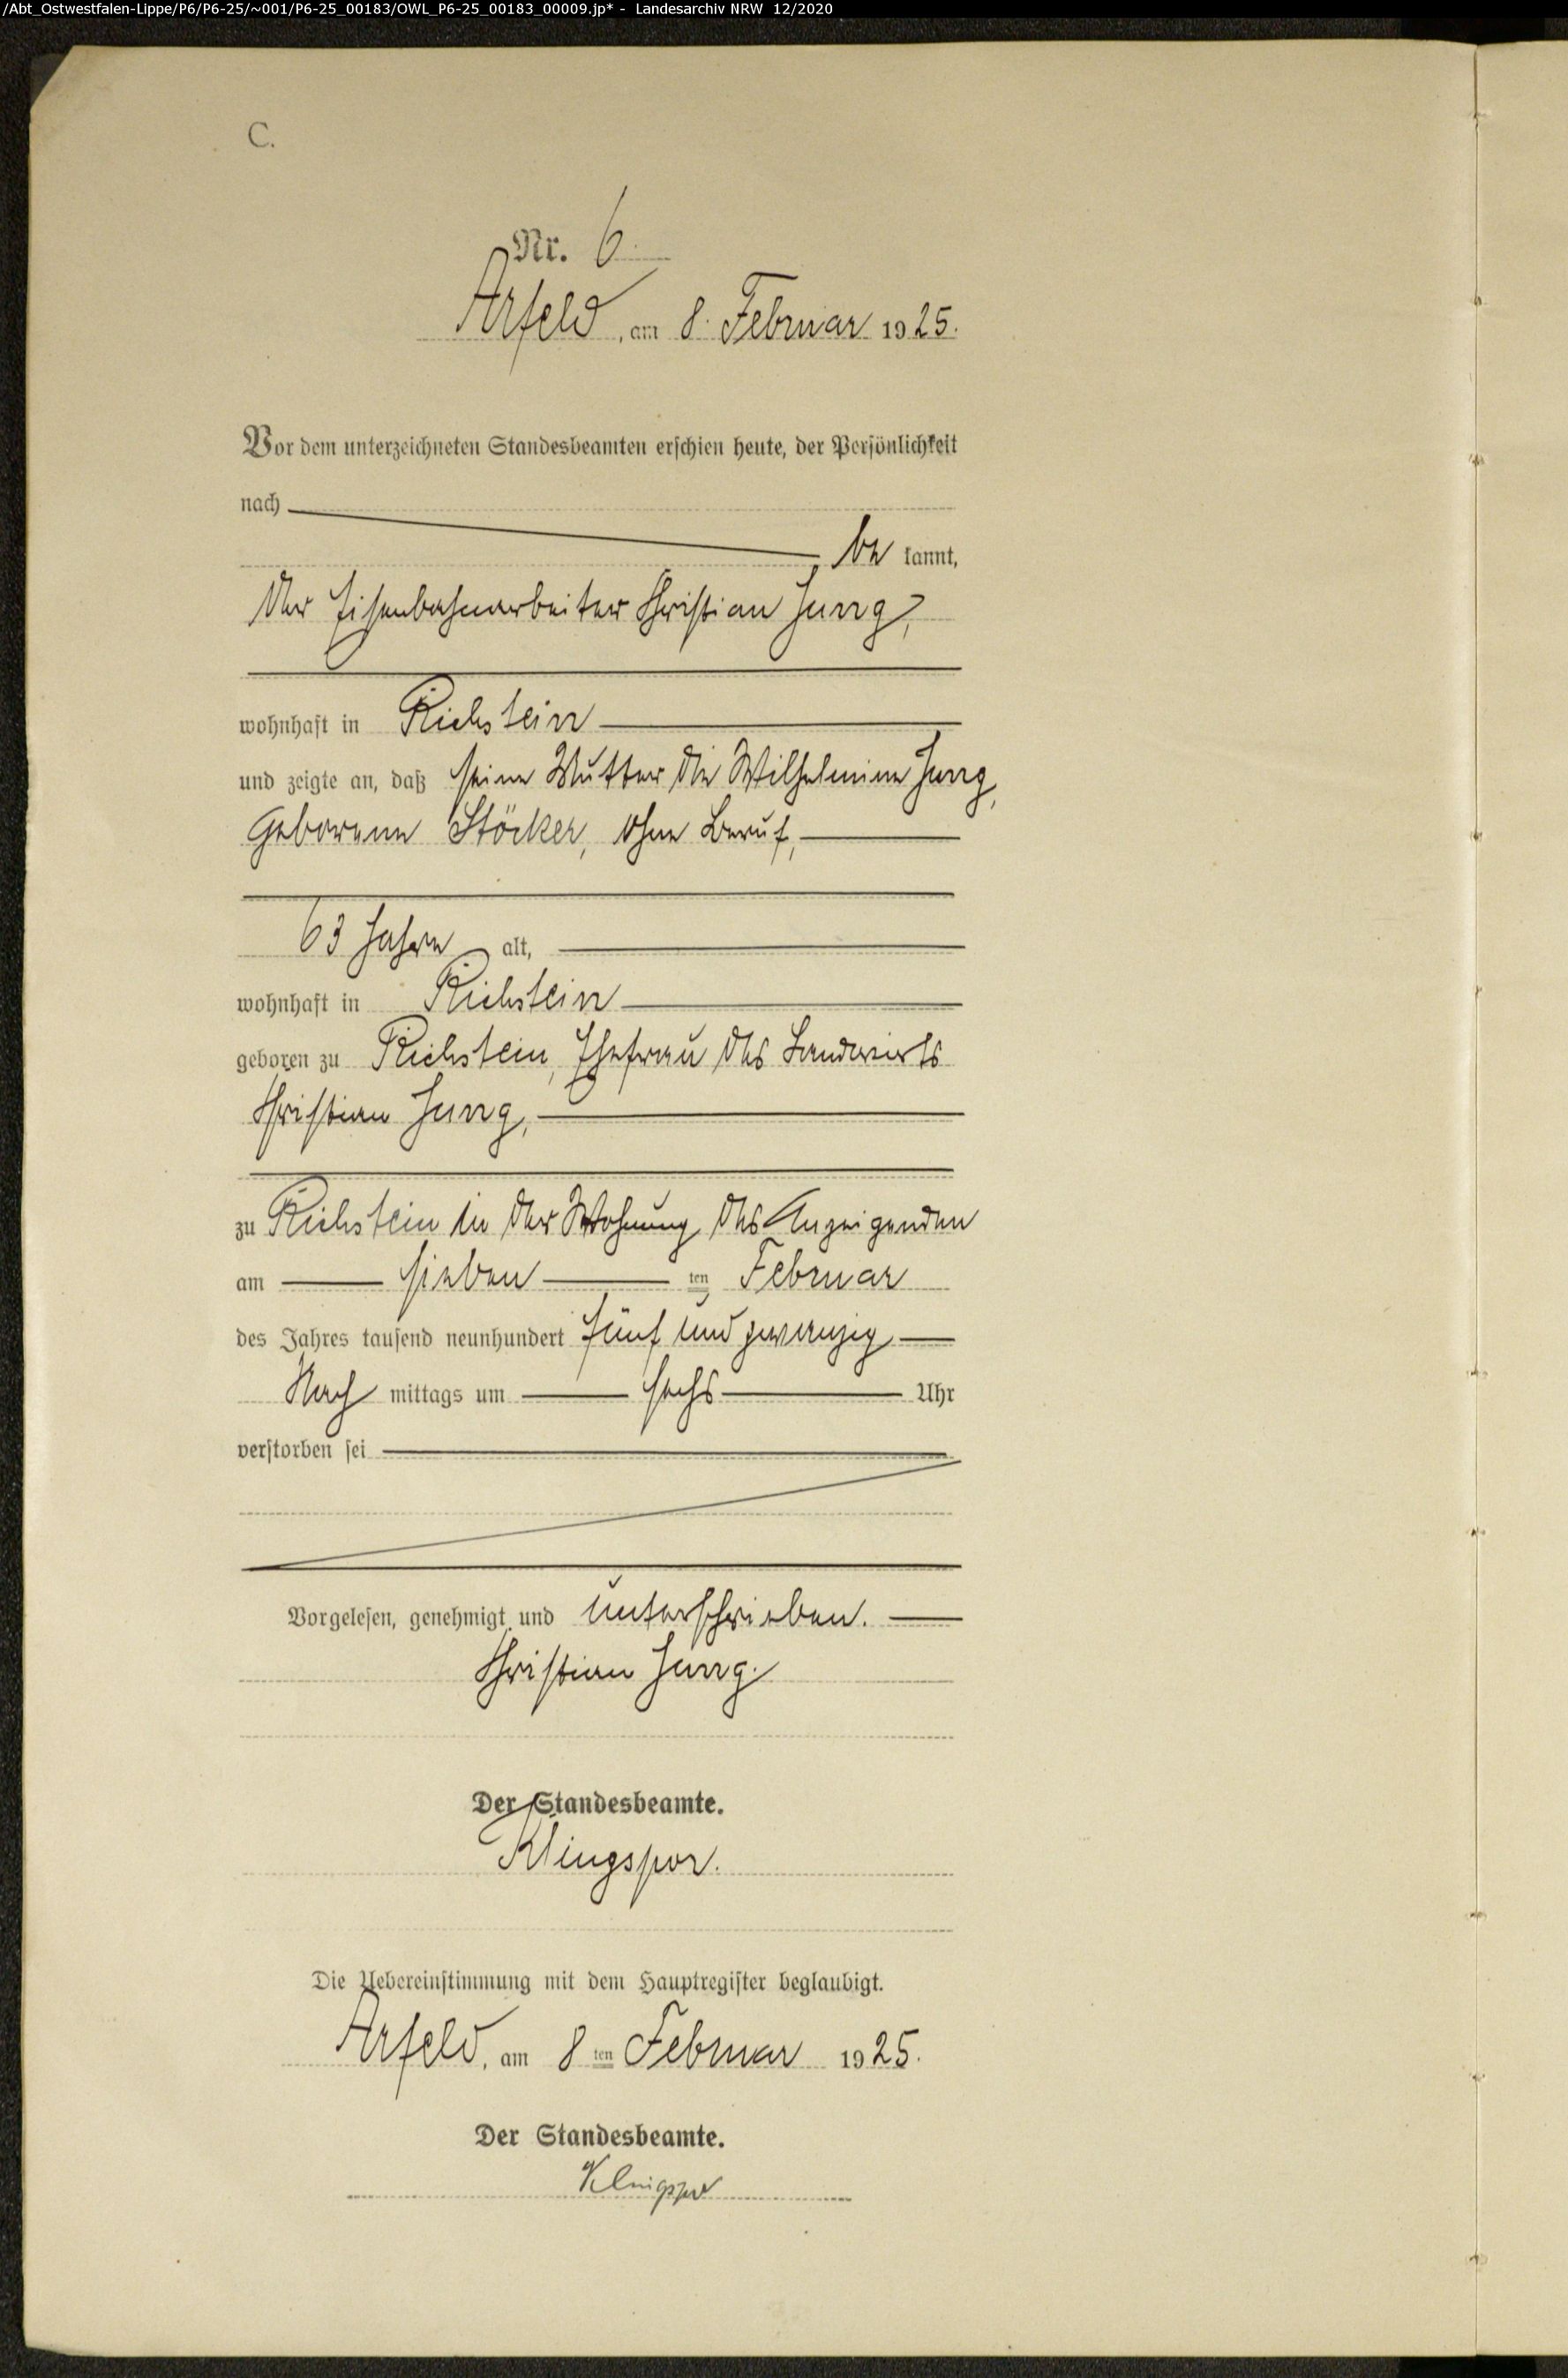 /Abt_Ostwestfalen-Lippe/P6/P6-25/~001/P6-25_00183/OWL_P6-25_00183_00009.jp* - Landesarchiv NRW 12/2020
C.
Nr. 6.
Arfeld, am 8. Februar 1925.
Vor dem unterzeichneten Standesbeamten erschien heute, der Persönlichkeit
nach
be kannt,
Der Eisenbahnarbeiter Christian Jung,
wohnhaft in Richstein
und zeigte an, daß seine Mutter die Wilhelmine Jung,
geborene Stöcker, ohne Beruf,
63 Jahre alt,
wohnhaft in Richstein
geboren zu Richstein, Ehefrau des Landwirts
Christian Jung,
zu Richstein in der Wohnung des Anzeigenden
am sieben ten Februar
des Jahres tausend neunhundert fünf und zwanzig
Nach mittags um sechs Uhr
verstorben sei
Vorgelesen, genehmigt und unterschrieben.
Christian Jung.
Der Standesbeamte.
Klingspor.
Die Uebereinstimmung mit dem Hauptregister beglaubigt.
Arfeld, am 8 ten Februar 1925.
Der Standesbeamte.
Klingspor